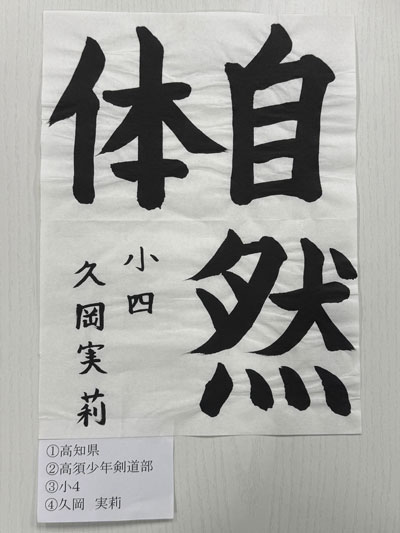 自然
体
小四
久岡実莉
①高知県
②高須少年剣道部
③小4
④久岡 実莉